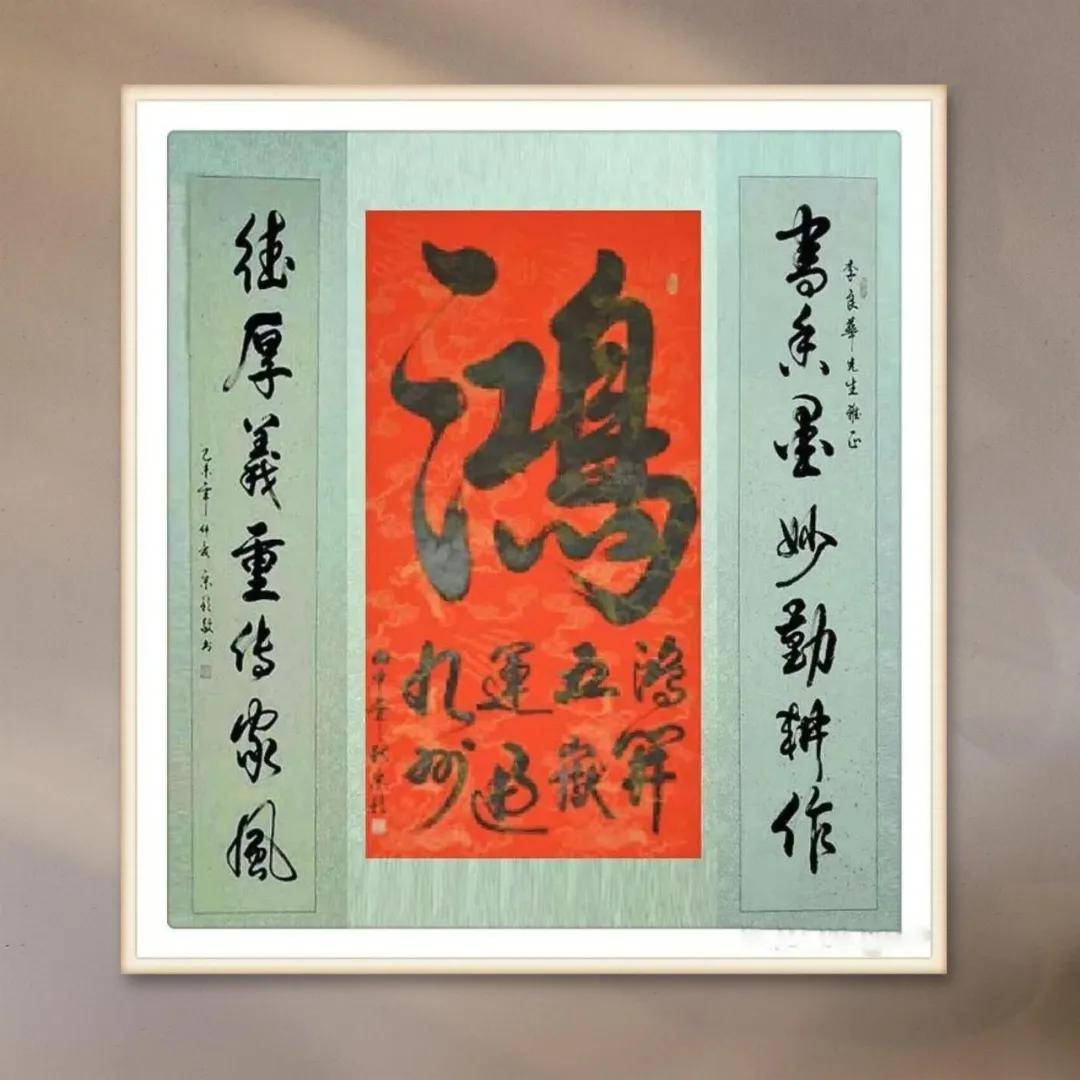 書香墨妙勤耕作
李良華先生雅正
鴻
鴻開
五嶽
運通
九州
德厚義重傳家風
乙未年仲